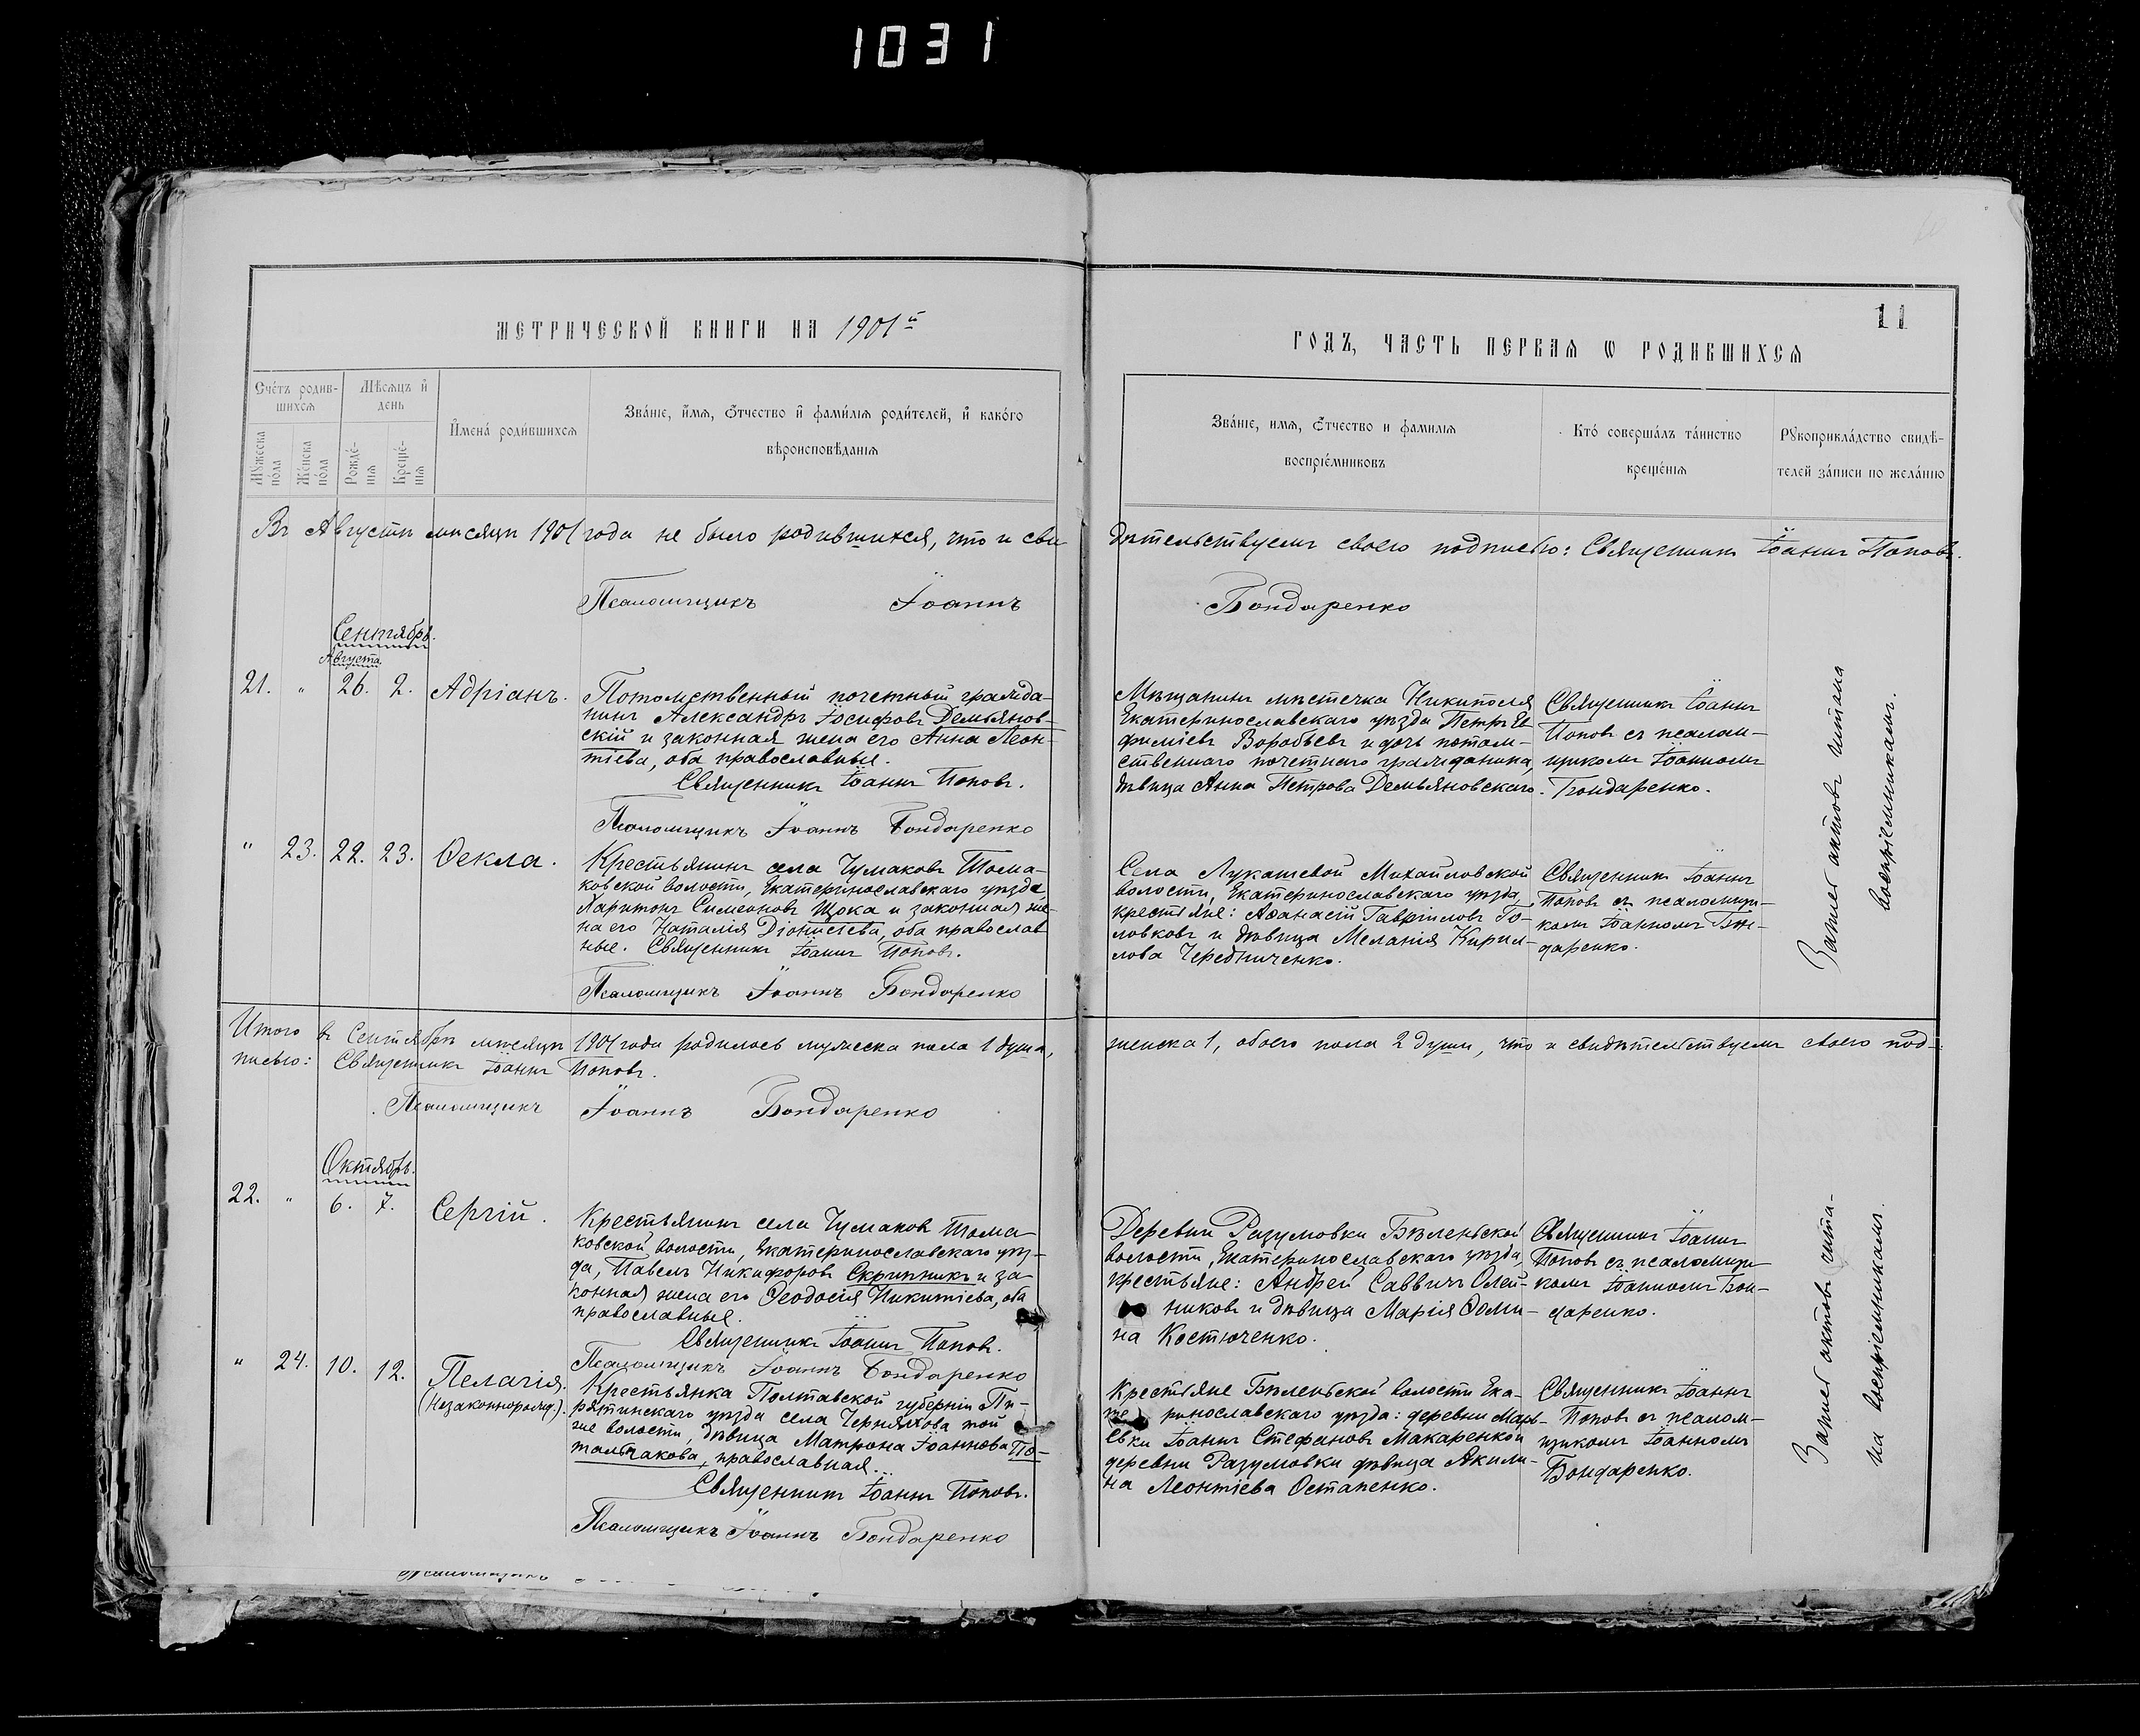 1031
МЕТРИЧЕСКОЙ КНИГИ НА 1901й
ГОДЪ, ЧАСТЬ ПЕРВАЯ Ѡ РОДИВШИХСЯ
11
Счетъ родив-
шихся
Мѣсяцъ и
день
Мужеска
пола
Женска
пола
Рожде-
нія
Креще-
нія
Имена родившихся
Званіе, имя, отчество и фамилія родителей, и какого
вѣроисповѣданія
Званіе, имя, отчество и фамилія
воспріемниковъ
Кто совершалъ таинство
крещенія
Рукоприкладство свидѣ-
телей записи по желанію
Въ Августѣ мѣсяцѣ 1901 года не было родившихся, что и сви
дѣтельствуемъ своею подписью: Священникъ Іоаннъ Поповъ.
Псаломщикъ Іоаннъ Бондаренко
Сентябрь.
Августа
21. " 26. 2. Адріанъ.
Потомственный почетный гражда-
нинъ Александръ Іосифовъ Демьянов-
скій и законная жена его Анна Леон-
тіева, оба православные.
Священникъ Іоаннъ Поповъ.
Псаломщикъ Іоаннъ Бондаренко
Мѣщанинъ мѣстечка Никиполя
Екатеринославскаго уѣзда Петръ Ев
фиміевъ Воробьевъ и дочь потом-
ственнаго почетнаго гражданина,
дѣвица Анна Петрова Демьяновскаго.
Священникъ Іоаннъ
Поповъ съ псалом-
щикомъ Іоанномъ
Бондаренко.
" 23. 22. 23. Ѳекла.
Крестьянинъ села Чумаковъ Тома-
ковской волости, Екатеринославскаго уѣзда
Харитонъ Симеоновъ Щока и законная же-
на его Наталія Діонисіева, оба православ
ные. Священникъ Іоаннъ Поповъ.
Псаломщикъ Іоаннъ Бондаренко
Села Лукашевой Михайловской
волости, Екатеринославскаго уѣзда,
крестьяне: Аѳанасій Гавріиловъ Го-
ловковъ и дѣвица Меланія Кирил-
лова Чередниченко.
Священникъ Іоаннъ
Поповъ съ псаломщи-
комъ Іоанномъ Бон-
даренко.
Записъ актовъ читана
воспріемникамъ.
Итого въ Сентябрѣ мѣсяцѣ 1901 года родилось мужеска пола 1 душа,
женска 1, обоего пола 2 души, что и свидѣтельствуемъ своею под-
писью: Священникъ Іоаннъ Поповъ.
Псаломщикъ Іоаннъ Бондаренко
Октябрь.
22. " 6. 7. Сергій.
Крестьянинъ села Чумаковъ Тома-
ковской волости, Екатеринославскаго уѣз-
да, Павелъ Никифоровъ Скрипникъ и за-
конная жена его Ѳеодосія Никитіева, оба
православные.
Священникъ Іоаннъ Поповъ.
Псаломщикъ Іоаннъ Бондаренко
Деревни Разумовки Бѣленьской
волости, Екатеринославскаго уѣзда,
крестьяне: Андрей Саввичъ Олей-
никовъ и дѣвица Марія Ѳоми-
на Костюченко.
Священникъ Іоаннъ
Поповъ съ псаломщи-
комъ Іоанномъ Бон-
даренко.
" 24. 10. 12. Пелагія.
(Незаконнорожд.).
Крестьянка Полтавской губерніи Пи-
рятинскаго уѣзда села Черняхова той
же волости, дѣвица Матрона Іоаннова По-
тальчакова, православная.
Священникъ Іоаннъ Поповъ.
Псаломщикъ Іоаннъ Бондаренко
Крестьяне Бѣленьской волости Ека-
теринославскаго уѣзда: деревни Марь-
евки Іоаннъ Стефановъ Макаренко и
деревни Разумовки дѣвица Акили-
на Леонтіева Остапенко.
Священникъ Іоаннъ
Поповъ съ псалом-
щикомъ Іоанномъ
Бондаренко.
Записъ актовъ чита-
на воспріемникамъ.
Псаломщикъ